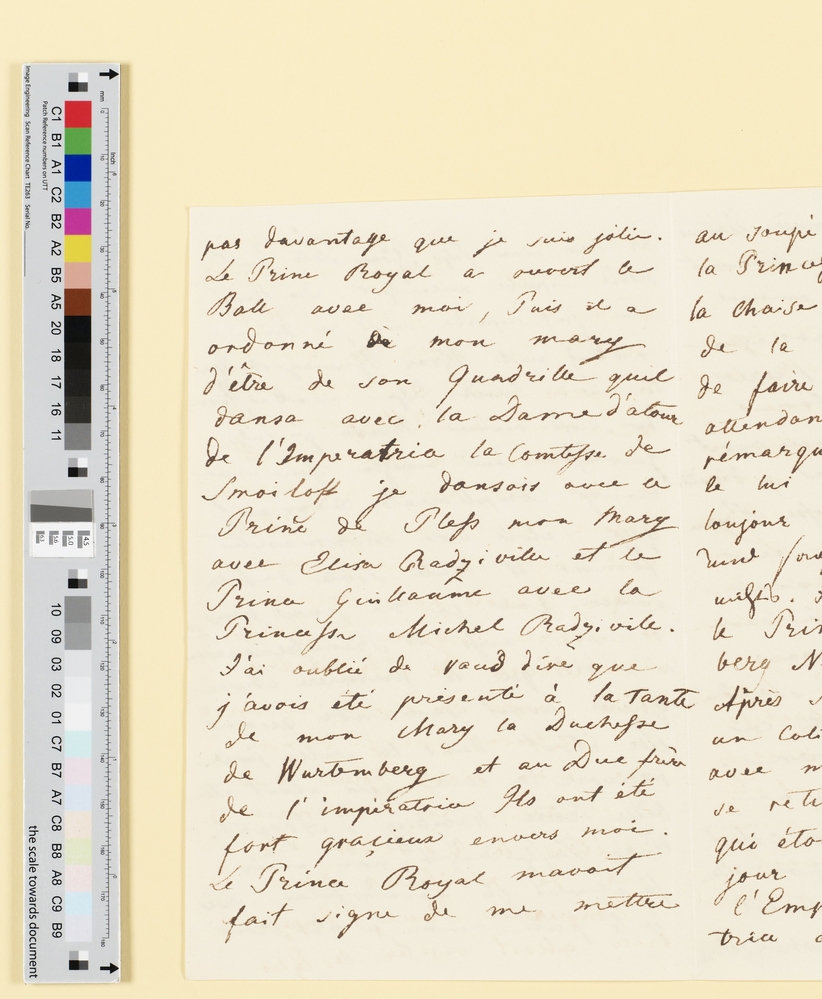 pas davantage que je suis jolie.
Le Prine Royal a ouvert le
Ball avec moi, Puis il a
ordonné à mon mary
d'être de son Quadrille quil
dansa avec la Dame d'atour
de l'Imperatrice la Comtesse de
Smoiloff je dansois avec le
Prine de Pless mon Mary
avec Elisa Radziville et le
Prince Guillaûme avec la
Princesse Michel Radziville.
J'ai oublié de vous dire que
j'avois été présenté à la Tante
de mon Mary la Duchesse
de Wurtemberg et au Duc frère
de l'impératrice Ils ont été
fort graçieux envers moi.
Le Prince Royal mavoit
fait signe de me mettre
au soupé
la Princes
la Chaise
de la
de faire
attendan
rémarqu
le lui
toujour
le Prin
berg N
Après
un Coti
avec m
se reti
qui éto
jour
l'Emp
trice
Image Engineering Scan Reference Chart TE263 Serial No.
Patch Reference numbers on UTT
C1 B1 A1 C2 B2 A2 B5 A5 20 18 17 16 11
10 09 03 02 01 C7 B7 A7 C8 B8 A8 C9 B9
mm
inch
the scale towards document